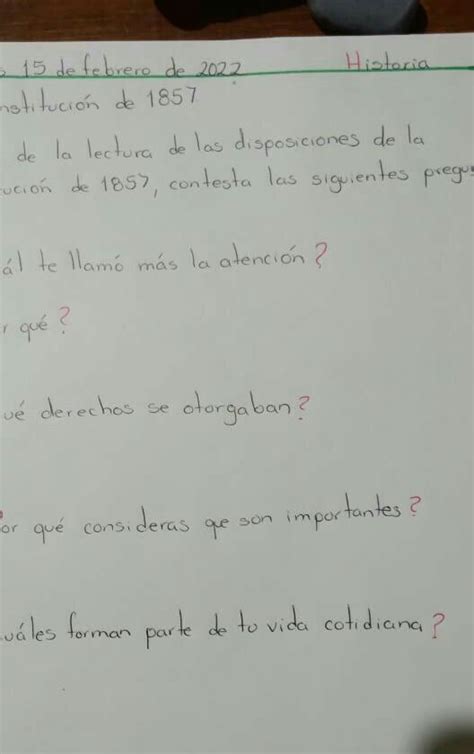 15 de febrero de 2022 Historia
nstitución de 1857
de la lectura de las disposiciones de la
ución de 1857, contesta las siguientes pregu
ál te llamó más la atención?
r qué?
ué derechos se otorgaban?
or qué consideras que son importantes?
uáles forman parte de tu vida cotidiana?